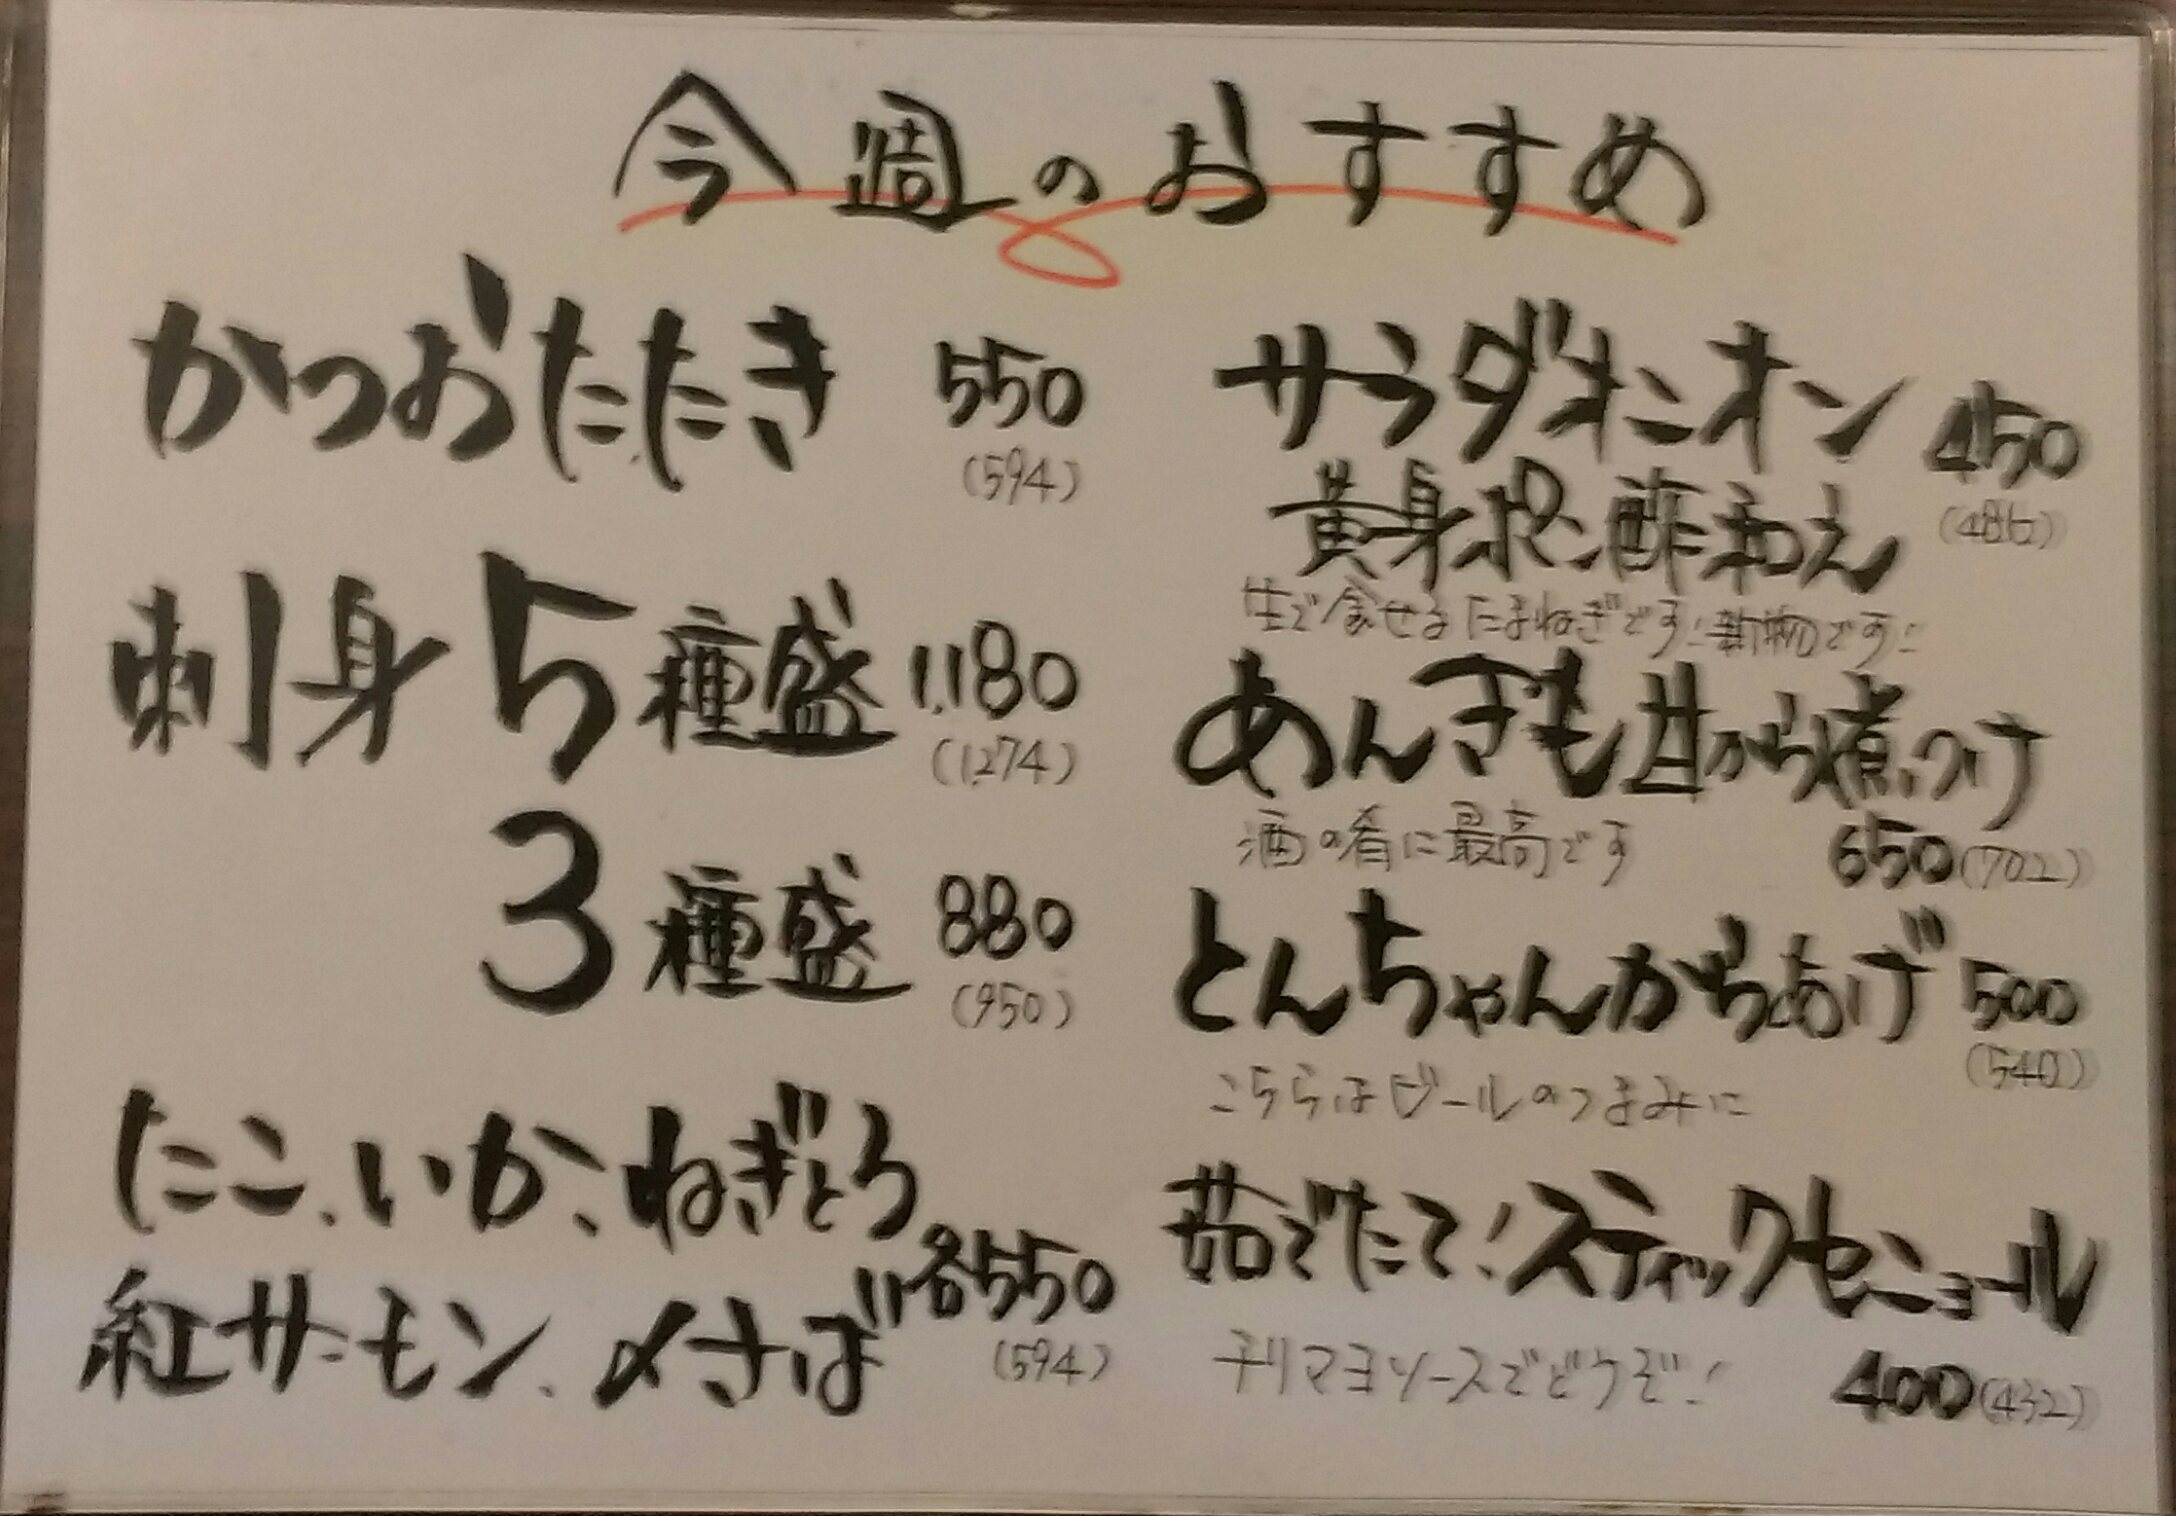 今週のおすすめ
かつおたたき 550
(594)
刺身5種盛 1,180
(1,274)
3種盛 880
(950)
たこ、いか、ねぎとろ
紅サーモン、〆さば 各550
(594)
サラダオニオン 450
黄身ポン酢和え (486)
生で食せるたまねぎです!新物です!
あんきも甘から煮つけ
酒の肴に最高です 650(702)
とんちゃんからあげ 500
(540)
こちらはビールのつまみに
茹でたて!スティックセニョール
チリマヨソースでどうぞ! 400(432)